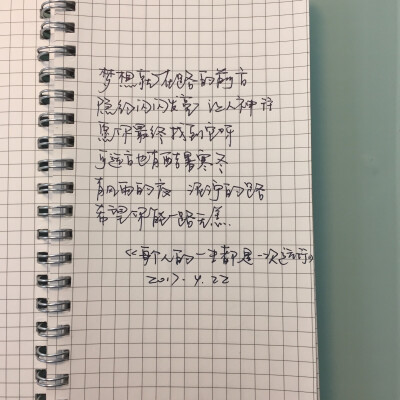 梦想就在路的前方
隐约闪闪发亮 让人神往
愿你最终找到它呀
远方也有酷暑寒冬
有风雨的夜 泥泞的路
希望你能一路无羔
《每个人的一生都是一次远行》
2017.4.22